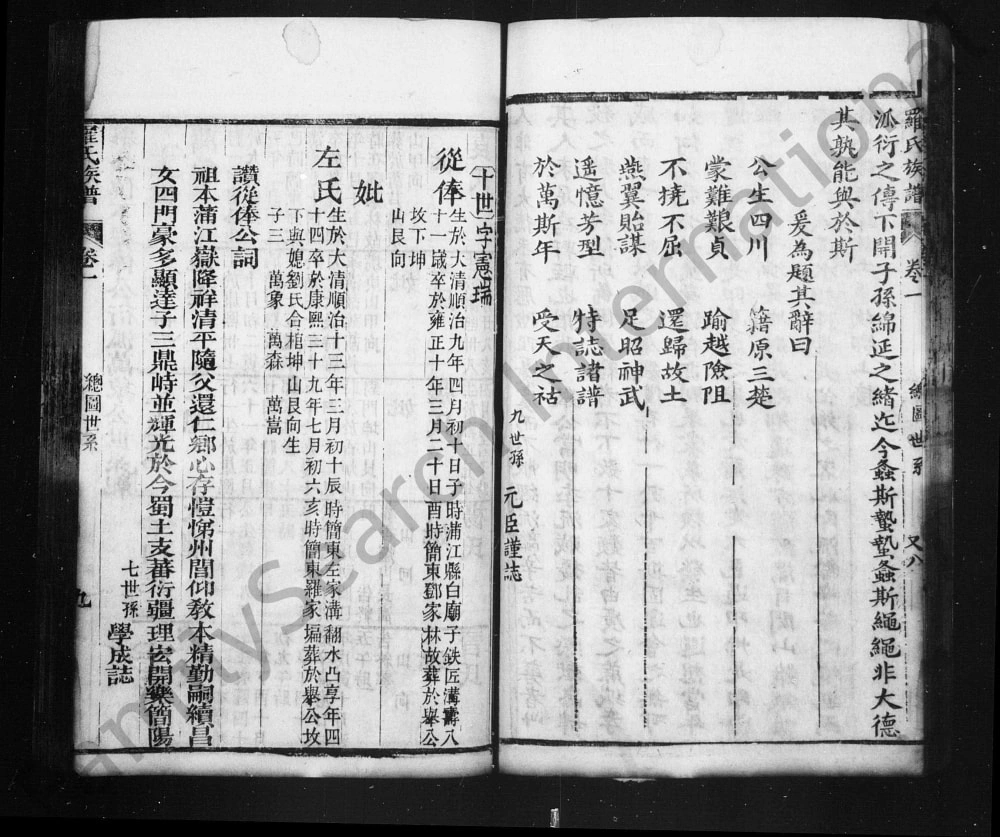 羅氏族譜 卷一 總圖世系 又八
派衍之傳下開子孫綿延之緒迄今螽斯蟄蟄螽斯繩繩非大德
其孰能與於斯
爰為題其辭曰
公生四川 籍原三楚
蒙難艱貞 踰越險阻
不撓不屈 還歸故土
燕翼貽謀 足昭神武
遥憶芳型 特誌諸譜
於萬斯年 受天之祜
九世孫 元臣謹誌
十世 字憲瑞
從俸 生於大清順治九年四月初十日子時蒲江縣白廟子鉄匠溝壽八
十一歲卒於雍正十年三月二十日酉時簡東鄧家林故葬於舉公
坟下坤
山艮向
妣
左氏 生於大清順治十三年三月初十辰時簡東左家溝翻水凸享年四
十四卒於康熙三十九年七月初六亥時簡東羅家塥葬於舉公坟
下與媳劉氏合棺坤山艮向生
子三 萬象 萬森 萬嵩
讚從俸公詞
祖本蒲江嶽降祥清平隨父還仁鄉心存愷悌州閭仰教本精勤嗣續昌
女四門豪多顯達子三鼎峙並輝光於今蜀土支蕃衍疆理宏開樂簡陽
七世孫 學成誌
羅氏族譜 卷一 總圖世系 九
FamilySearch International